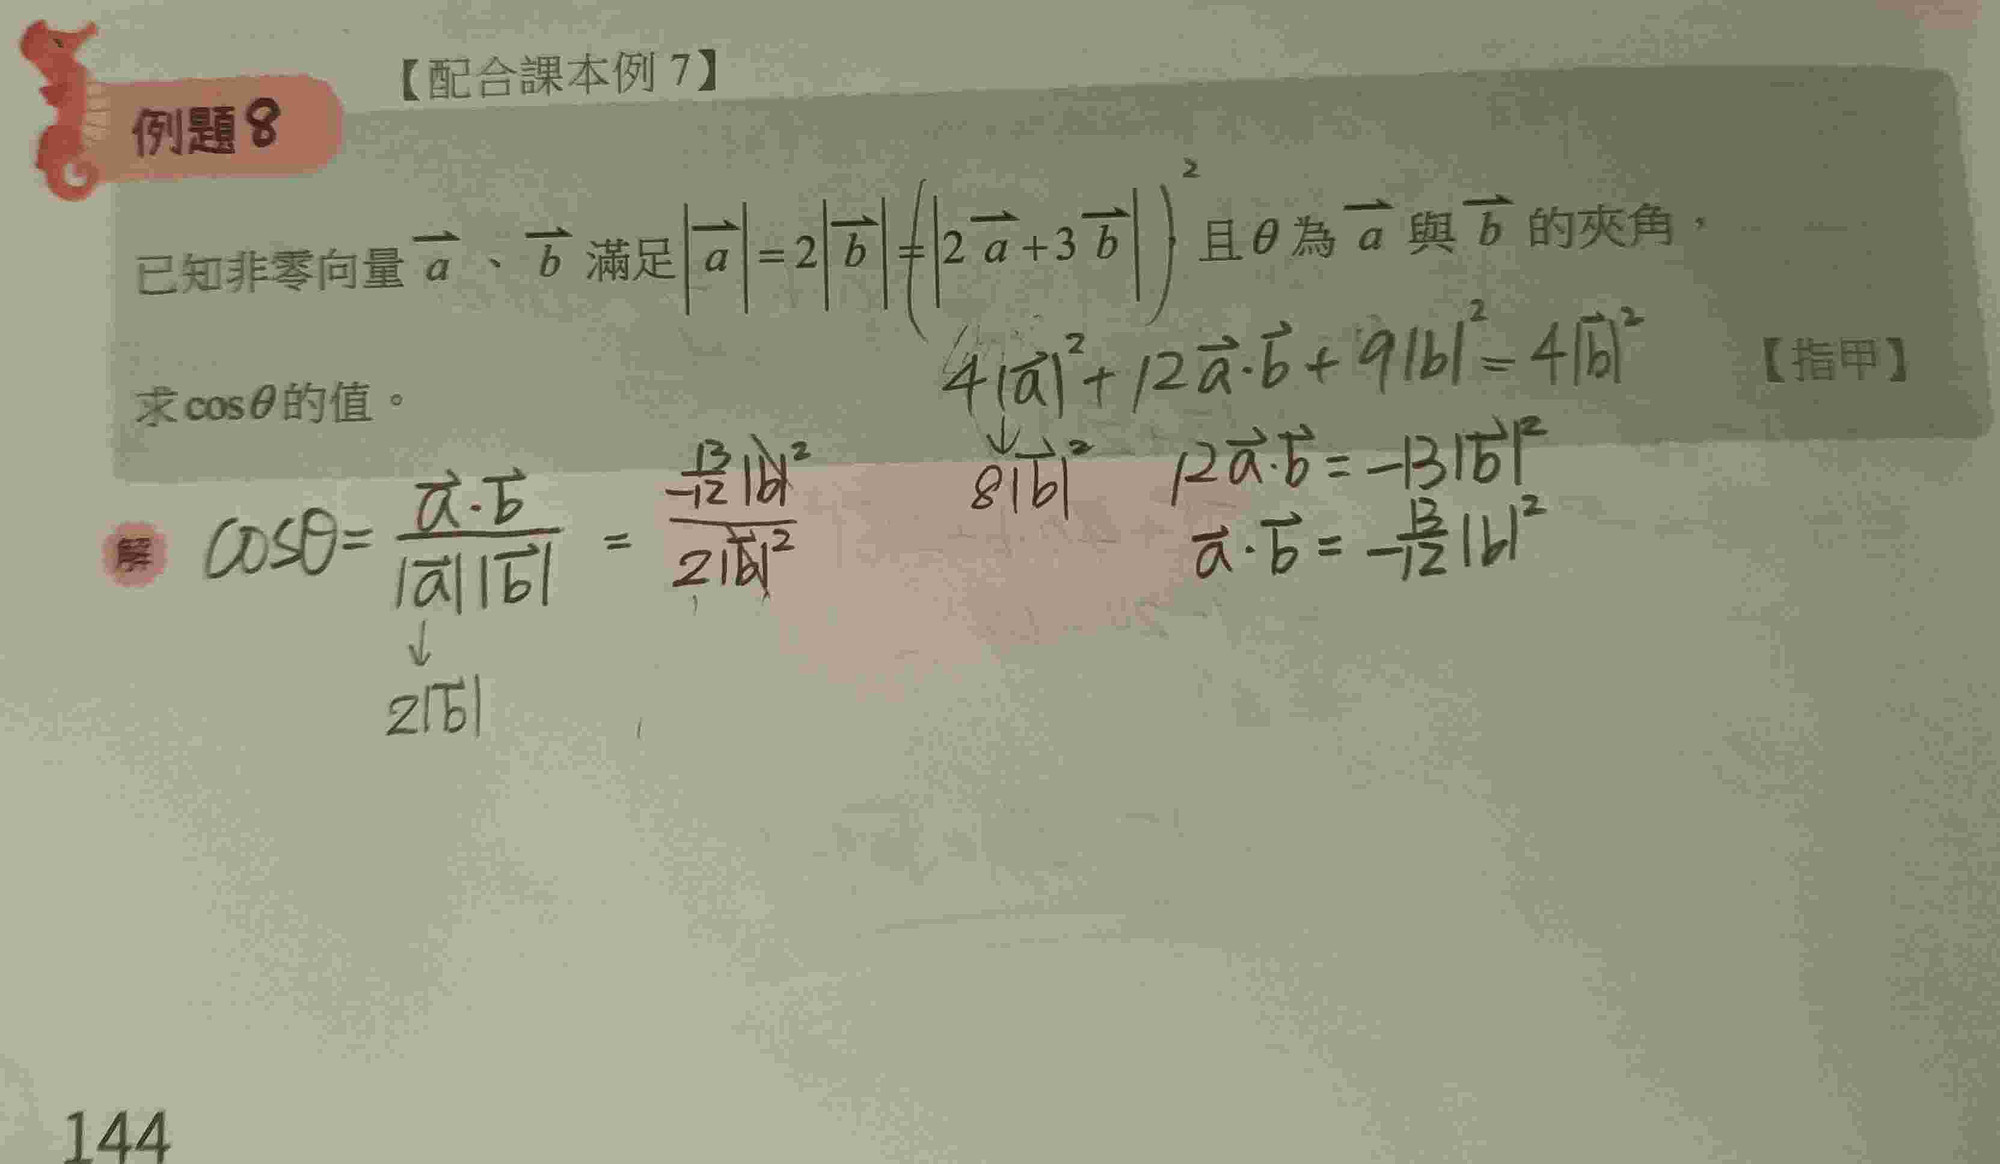 【配合課本例 7】
例題8
已知非零向量 a、b 滿足 |a| = 2|b| = (|2a + 3b|)² 且θ為 a 與 b 的夾角,
求cosθ的值。
【指甲】
4|a|² + 12a·b + 9|b|² = 4|b|²
↓
8|b|²
12a·b = -13|b|²
a·b = -13/12 |b|²
解 cosθ = a·b / |a||b| = -13/12 |b|² / 2|b|²
↓
2|b|
144